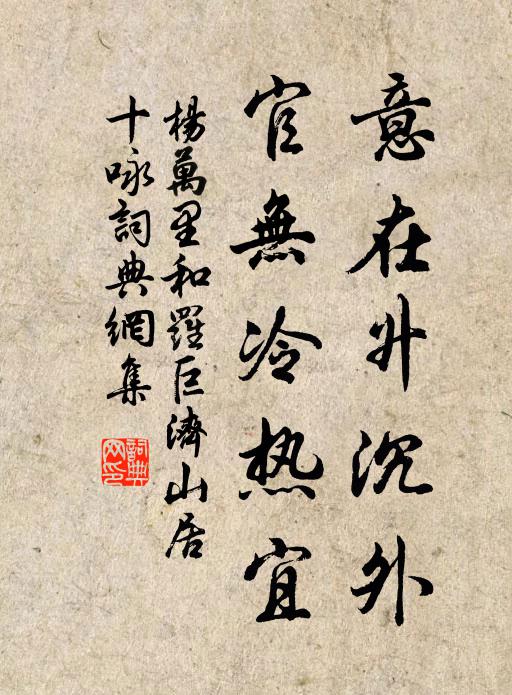 意在升沉外
官無冷热宜
楊萬里和羅巨濟山居
十咏詞典網集
詞典
网印